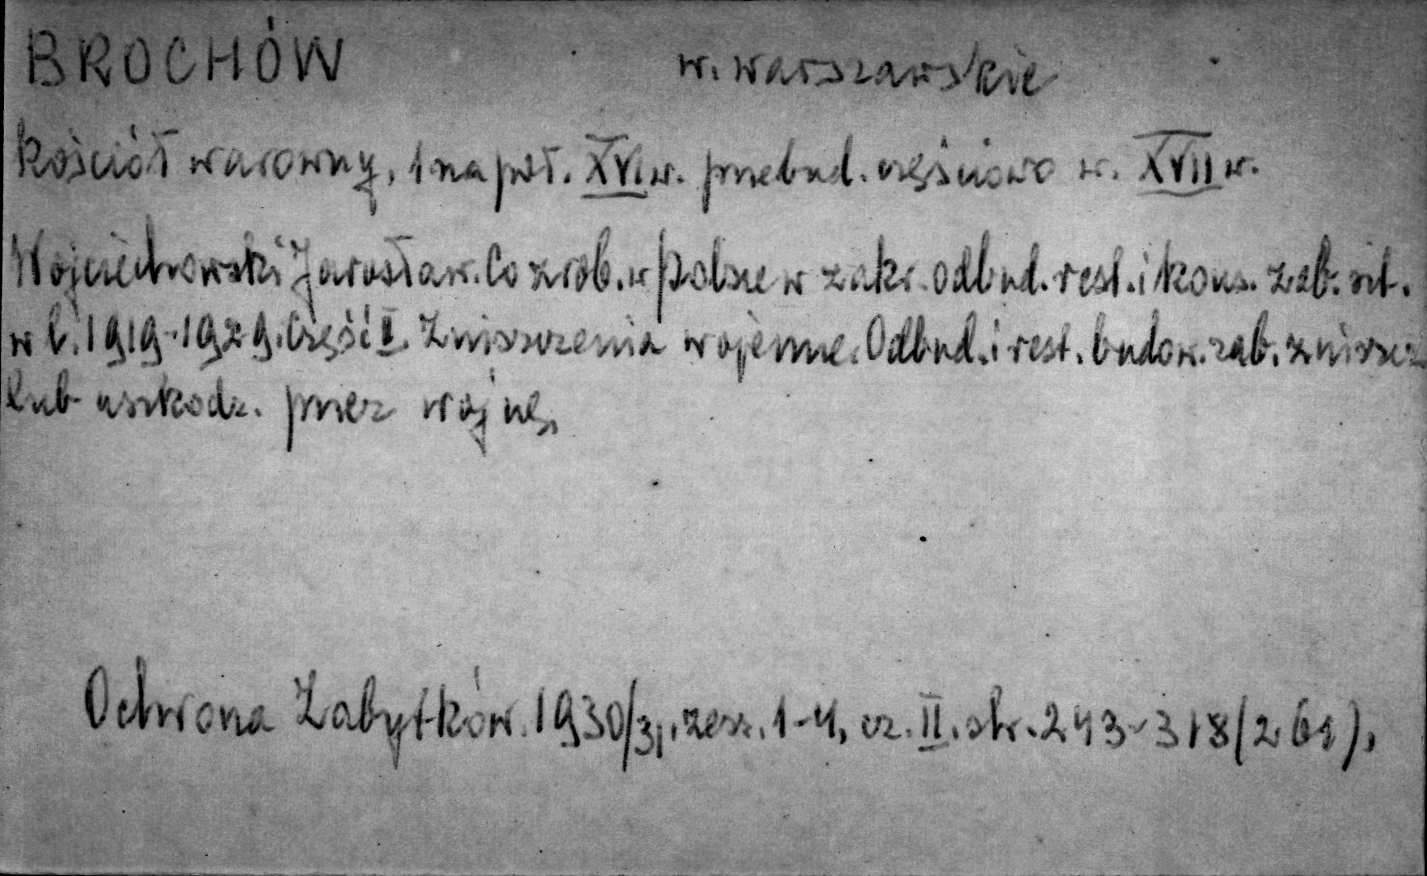 BROCHÓW w. warszawskie
kościół warowny, 1 na poł. XVI w. przebud. częściowo w. XVII w.
Wojciechowski Jarosław. Co zrob. w Polsce w zakr. odbud. rest. i kons. zab. szt.
w l. 1919-1929. Część II. Zniszczenia wojenne. Odbud. i rest. budow. zab. zniszcz
lub uszkodz. przez wojnę,
Ochrona Zabytków. 1930/31, zesz. 1-4, cz. II. str. 243-318 (261),